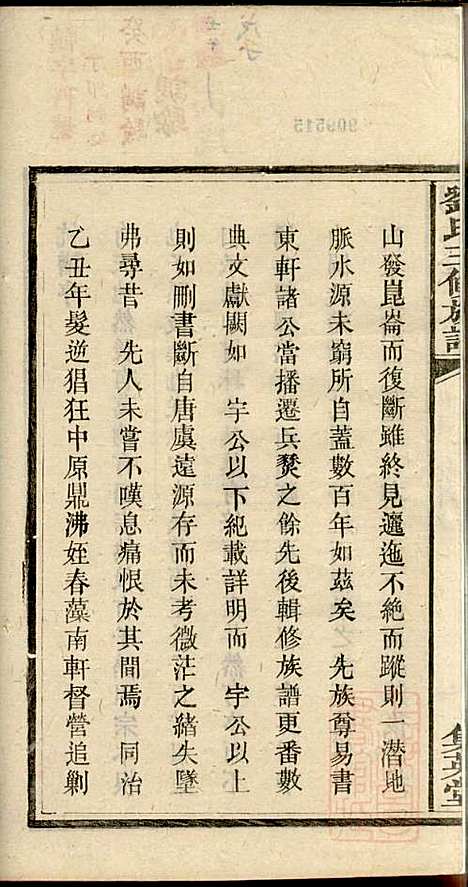 山發崑崙而復斷雖終見邐迤不絕而蹤則一潛地
脈水源未窮所自蓋數百年如茲矣 先族尊易書
東軒諸公當播遷兵燹之餘先後輯修族譜更番數
典文獻闕如 宇公以下紀載詳明而 宇公以上
則如刪書斷自唐虞遠源存而未考微茫之緒失墜
弗尋昔 先人未嘗不嘆息痛恨於其間焉 同治
乙丑年髮逆猖狂中原鼎沸姪春藻南軒督營追剿
劉氏三修族譜
集英堂
909515